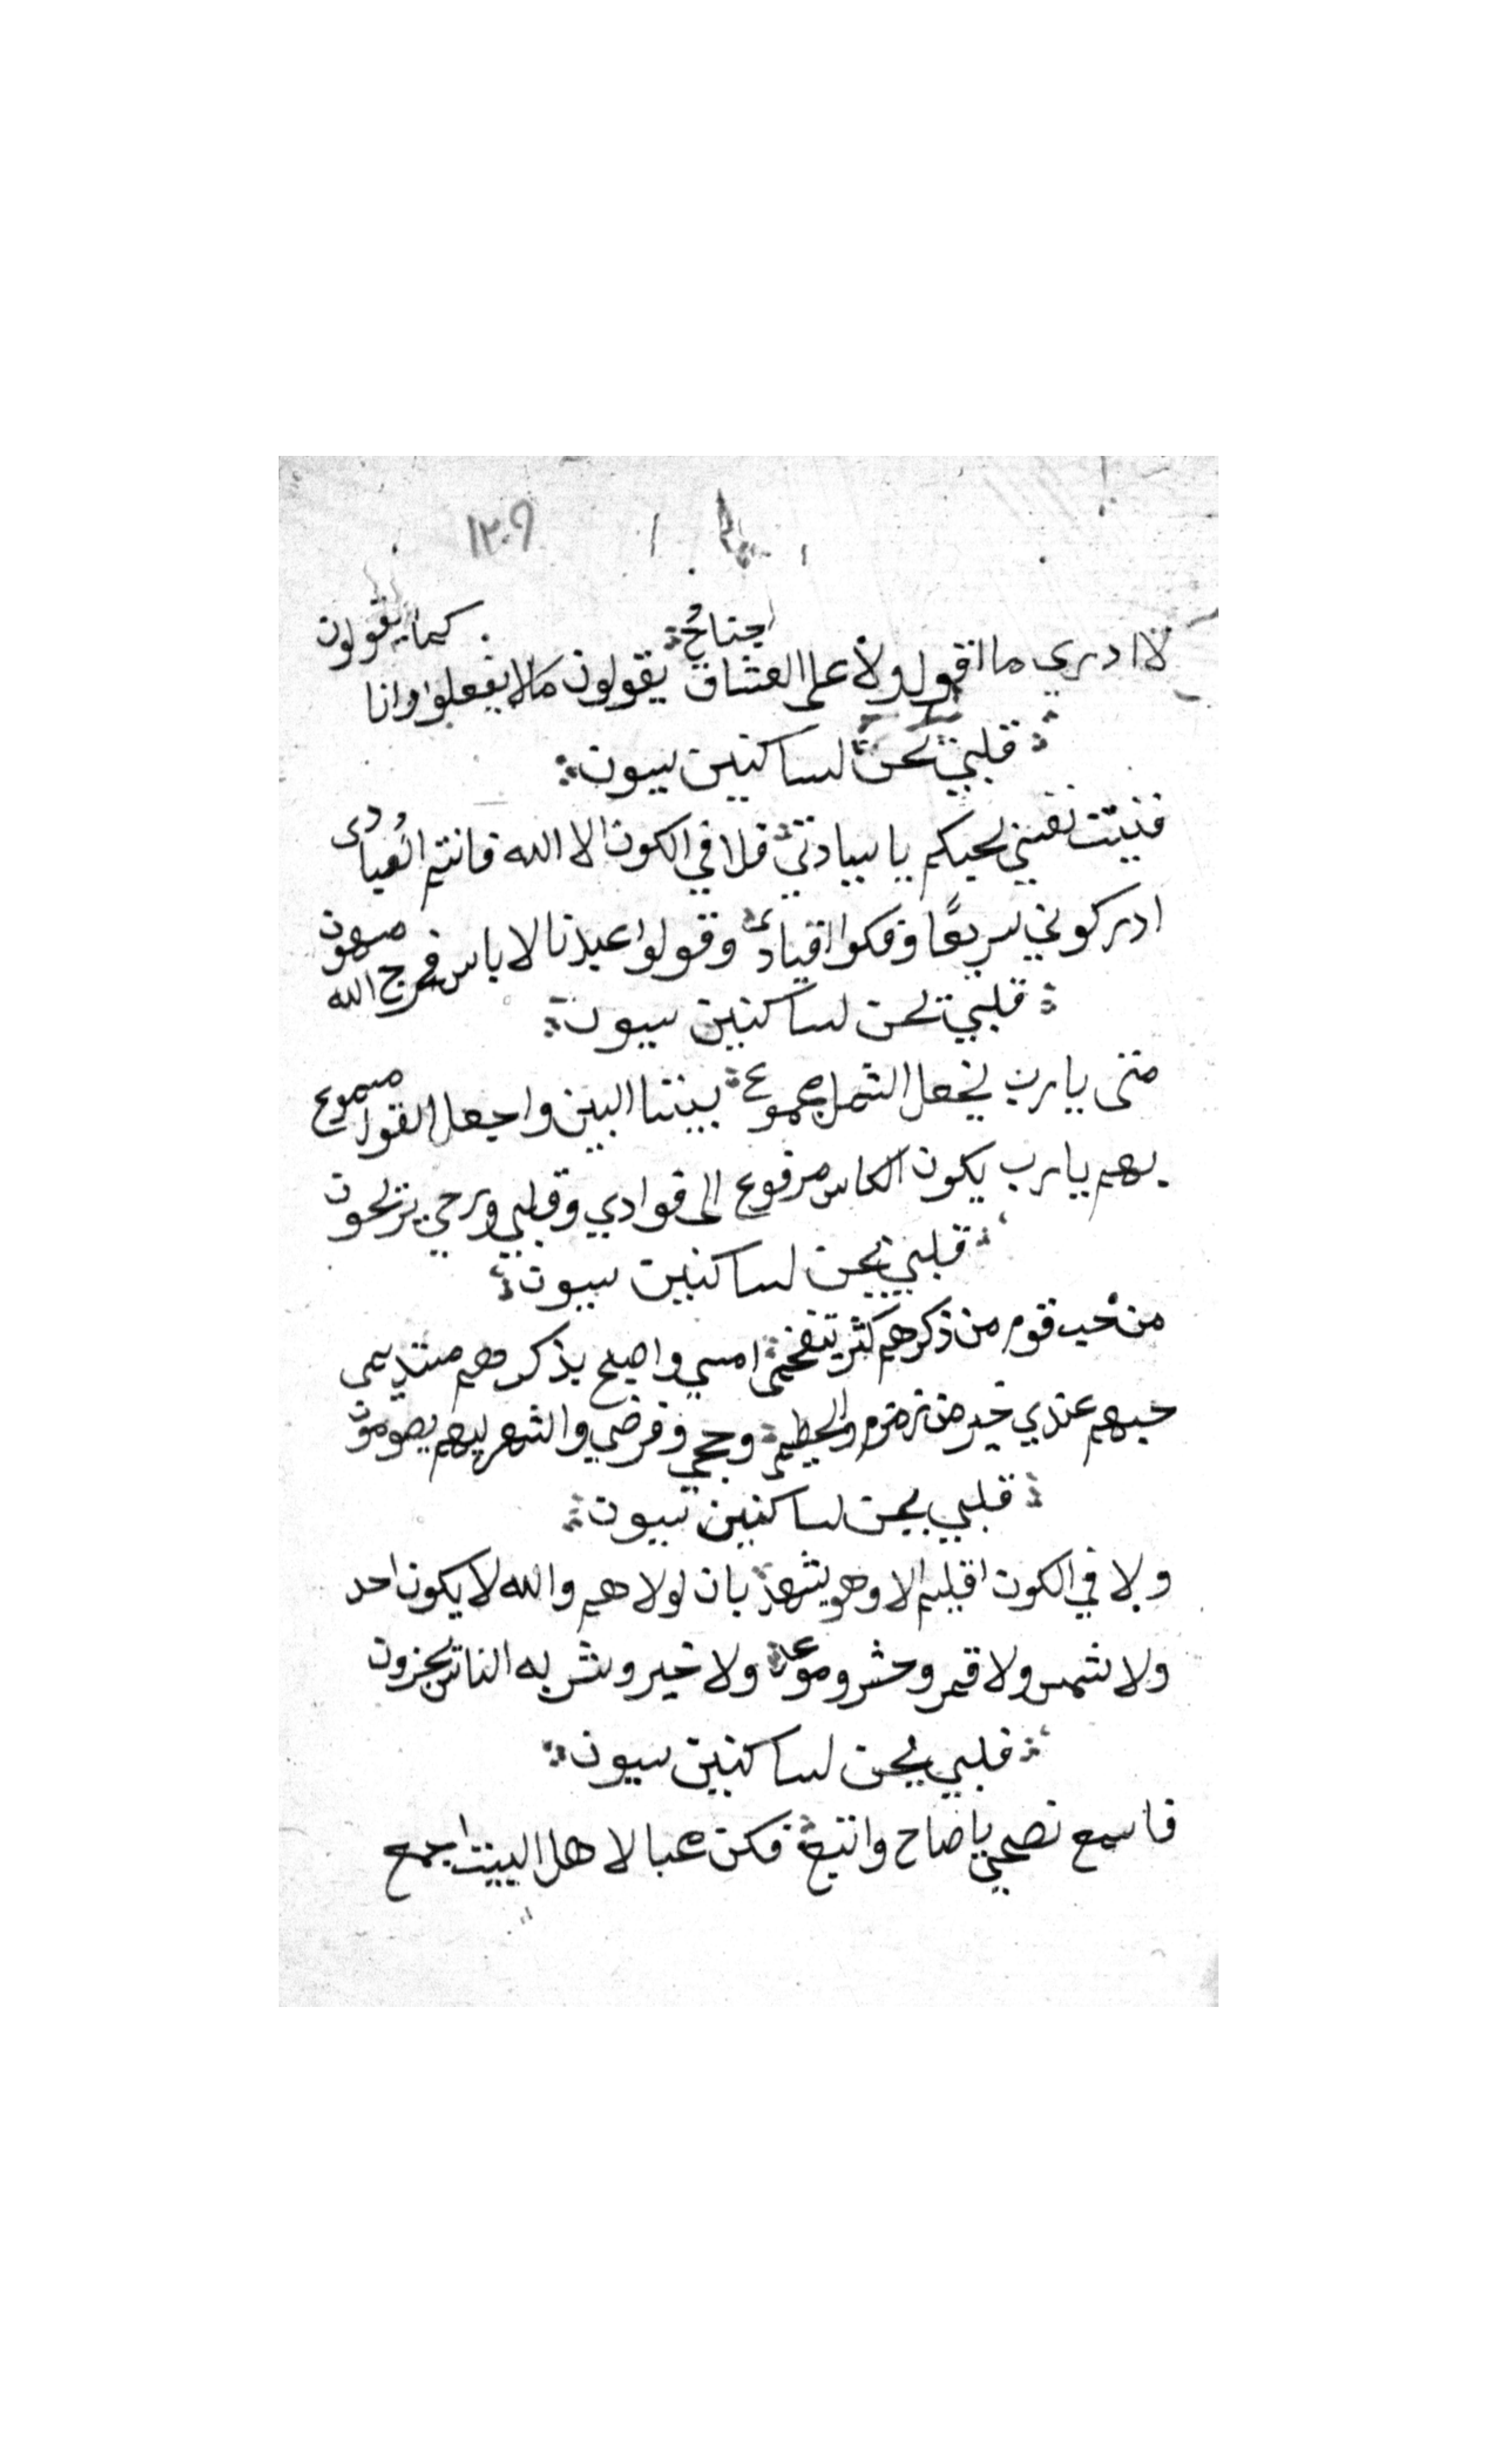 ١٢٠٩
لا ادري ما اقول ولا على العشاق اجنائح يقولون ما لا يفعلوا وانا كما يقولون
قلبي يحن لساكنين سيون
فنيت نفسي بحبكم يا سيادتي فلا في الكون الا الله فانتم العيادى
ادركوني سريعًا وفكوا اقيادى وقولوا عبدنا لا باس فرج الله مهون
قلبي يحن لساكنين سيون
متى يا رب يجعل الشمل مجموع بيننا البين واجعل القول مسموع
بهم يا رب يكون الكاس مرفوع الى فوادي وقلبي ورحي
قلبي يحن لساكنين سيون
من حب قوم من ذكرهم كثر امسي واصبح بذكرهم مستديمي
حبهم عندي خير من زمزم والحطيم وحجي وفرضي والشهر ليهم يصومون
قلبي يحن لساكنين سيون
ولا في الكون اقليم الا وهو يشهد بان لولا هم والله لا يكون احد
ولا شمس ولا قمر وحشر وموعد ولا خير وشر به الناس يجزون
قلبي يحن لساكنين سيون
فاسمع نصحي يا صاح واتبع فكن محبا لاهل البيت اجمع